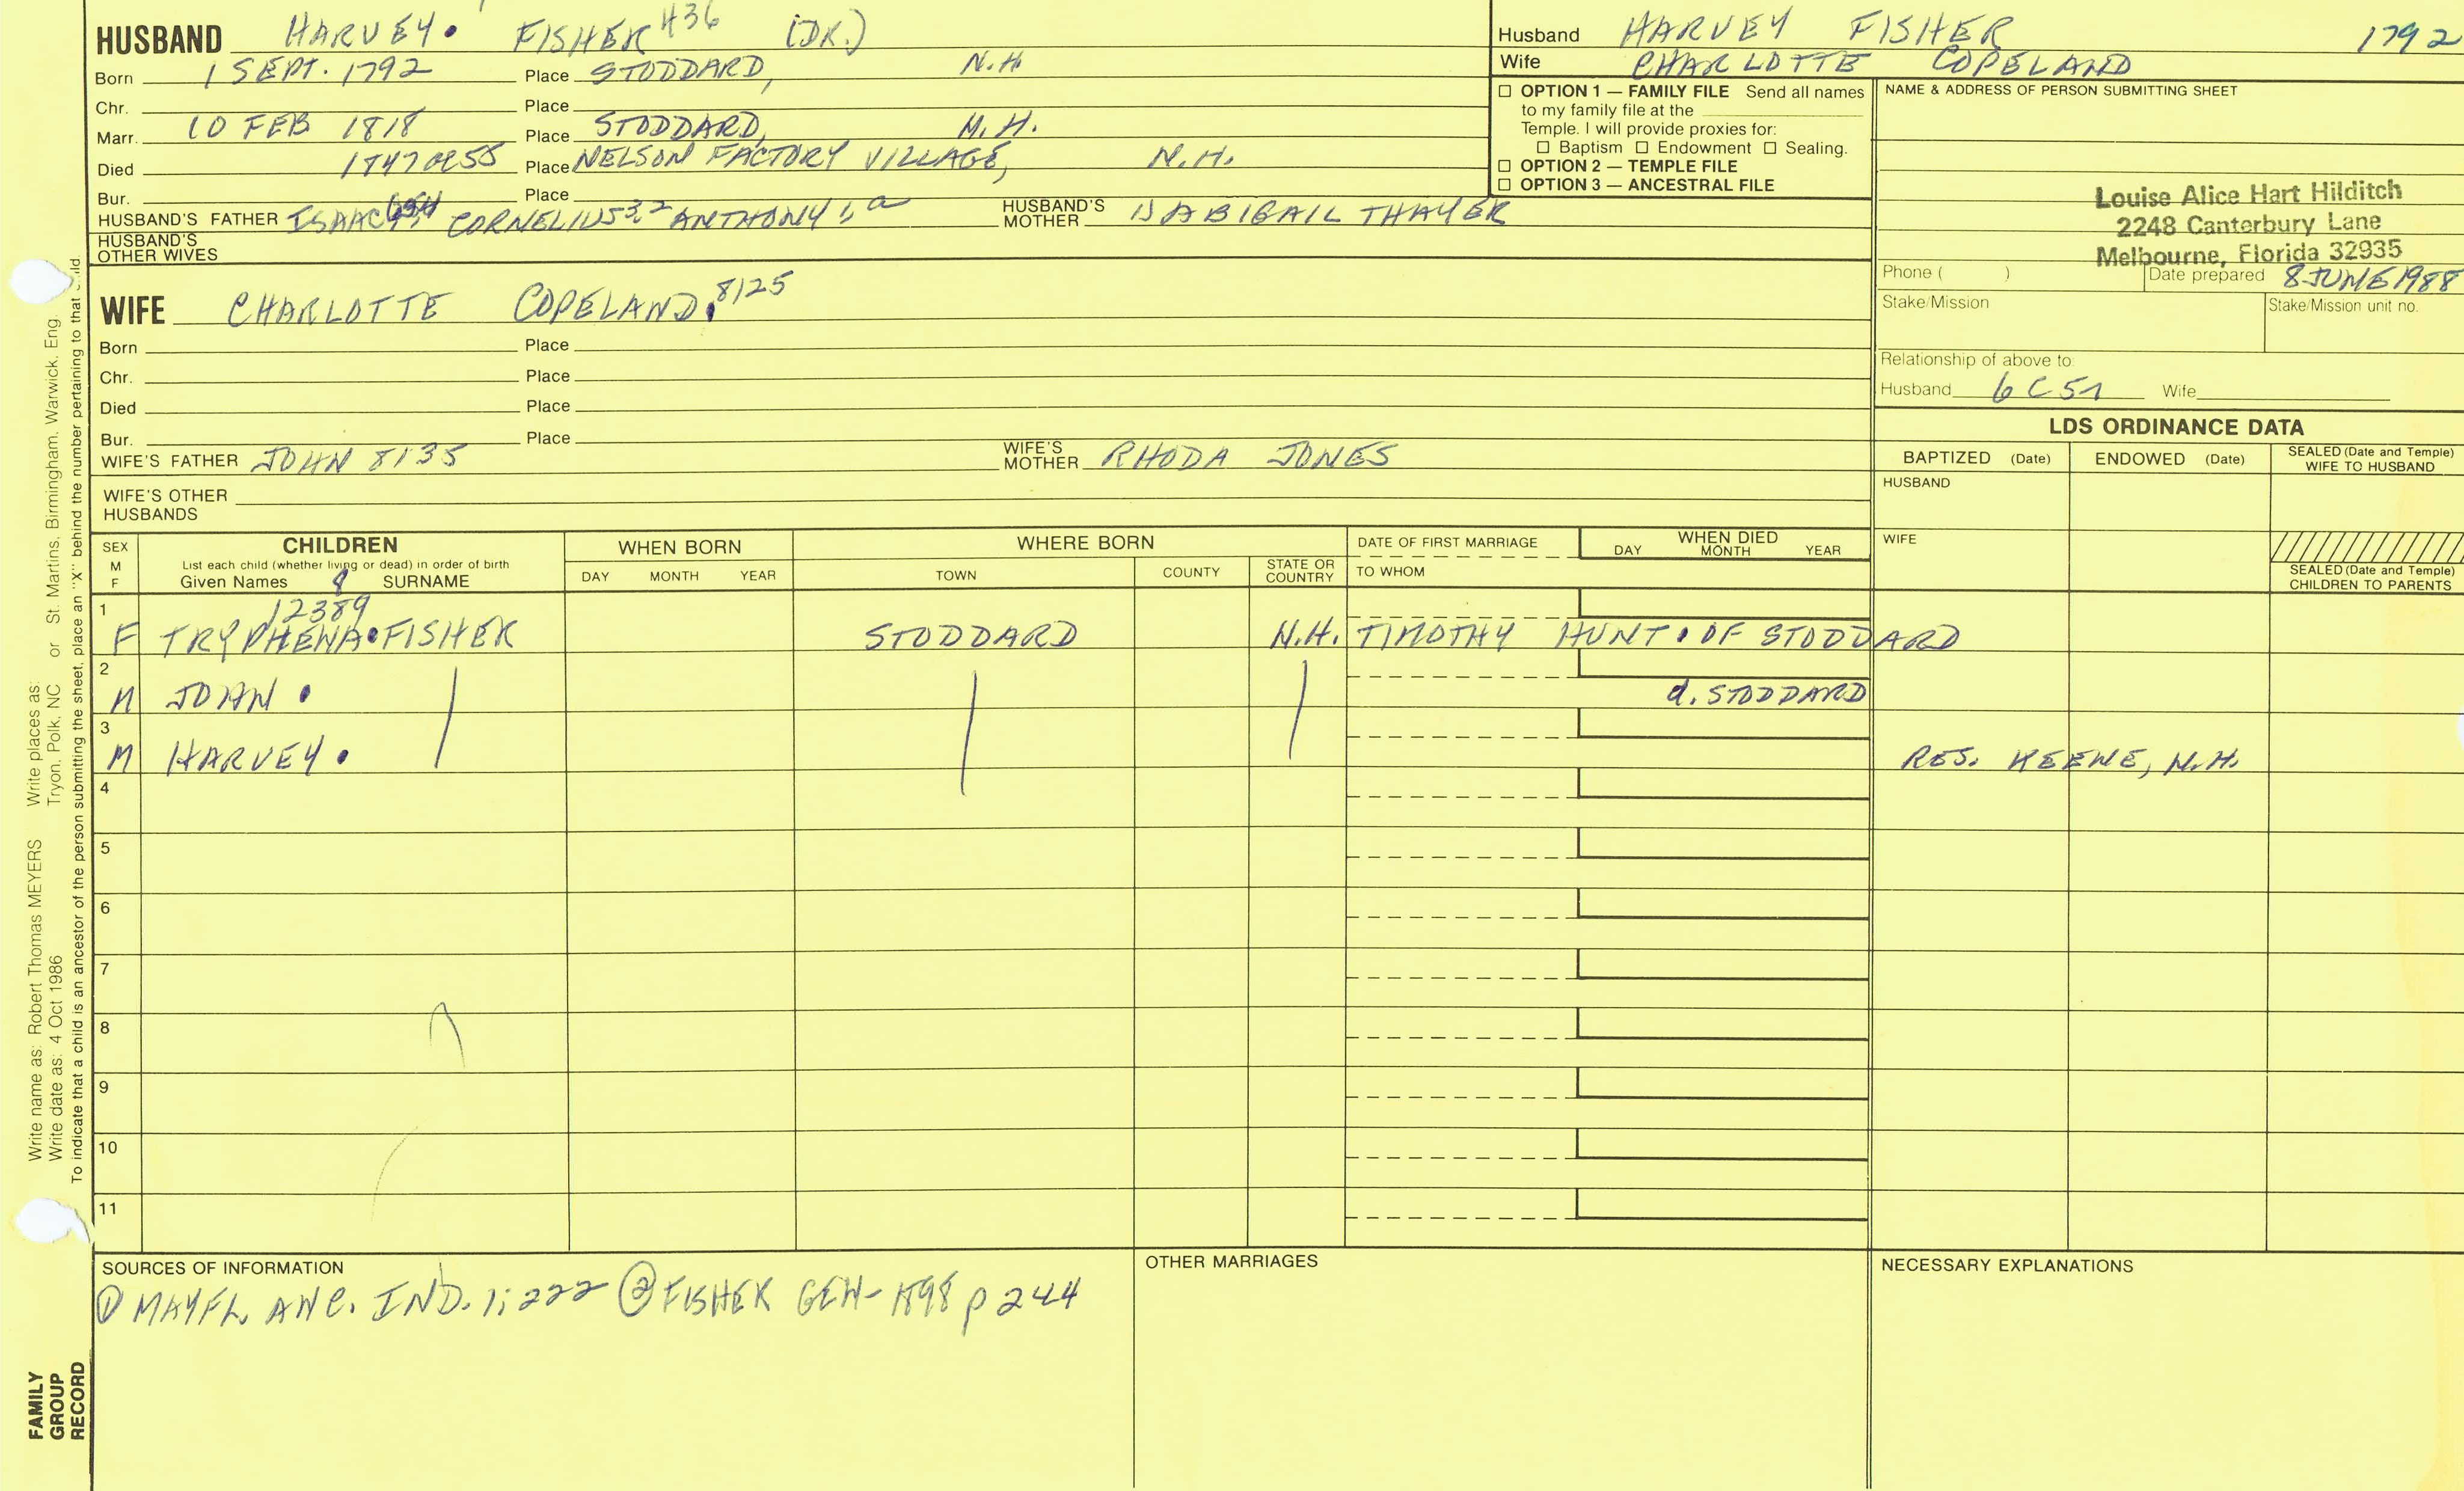 HUSBAND HARVEY. FISHER 436 (DR.)
Born 1 SEPT. 1792 Place STODDARD, N.H
Chr. Place
Marr. 10 FEB 1818 Place STODDARD, N.H.
Died 1847 OR 55 Place NELSON FACTORY VILLAGE, N.H.
Bur. Place
HUSBAND'S FATHER ISAAC CORNELIUS 3,2 ANTHONY 1, a HUSBAND'S MOTHER 1) ABIGAIL THAYER
HUSBAND'S
OTHER WIVES
Husband HARVEY FISHER 1792
Wife CHARLOTTE COPELAND
☐ OPTION 1 — FAMILY FILE Send all names
to my family file at the
Temple. I will provide proxies for:
☐ Baptism ☐ Endowment ☐ Sealing.
☐ OPTION 2 — TEMPLE FILE
☐ OPTION 3 — ANCESTRAL FILE
NAME & ADDRESS OF PERSON SUBMITTING SHEET
Louise Alice Hart Hilditch
2248 Canterbury Lane
Melbourne, Florida 32935
Phone ( ) Date prepared 8 JUNE 1988
Stake/Mission Stake/Mission unit no.
Relationship of above to:
Husband 6C5R Wife
WIFE CHARLOTTE COPELAND. 8125
Born Place
Chr. Place
Died Place
Bur. Place
WIFE'S FATHER JOHN 8135 WIFE'S MOTHER RHODA JONES
WIFE'S OTHER
HUSBANDS
LDS ORDINANCE DATA
BAPTIZED (Date) ENDOWED (Date) SEALED (Date and Temple) WIFE TO HUSBAND
HUSBAND
WIFE
SEALED (Date and Temple)
CHILDREN TO PARENTS
SEX M F CHILDREN WHEN BORN WHERE BORN DATE OF FIRST MARRIAGE WHEN DIED
List each child (whether living or dead) in order of birth DAY MONTH YEAR
Given Names SURNAME DAY MONTH YEAR TOWN COUNTY STATE OR COUNTRY TO WHOM
1 12389
F TRYPHENA. FISHER STODDARD N.H. TIMOTHY HUNT. OF STODDARD
2
M JOHN . d. STODDARD
3
M HARVEY . RES. KEENE, N.H.
4
5
6
7
8
9
10
11
SOURCES OF INFORMATION
① MAYFL. ANC. IND. 1:222 ② FISHER GEN- 1898 p 244
OTHER MARRIAGES
NECESSARY EXPLANATIONS
Write name as: Robert Thomas MEYERS Write places as: St. Martins, Birmingham, Warwick, Eng.
Write date as: 4 Oct 1986 Tryon, Polk, NC or
To indicate that a child is an ancestor of the person submitting the sheet, place an "X" behind the number pertaining to that child.
FAMILY
GROUP
RECORD